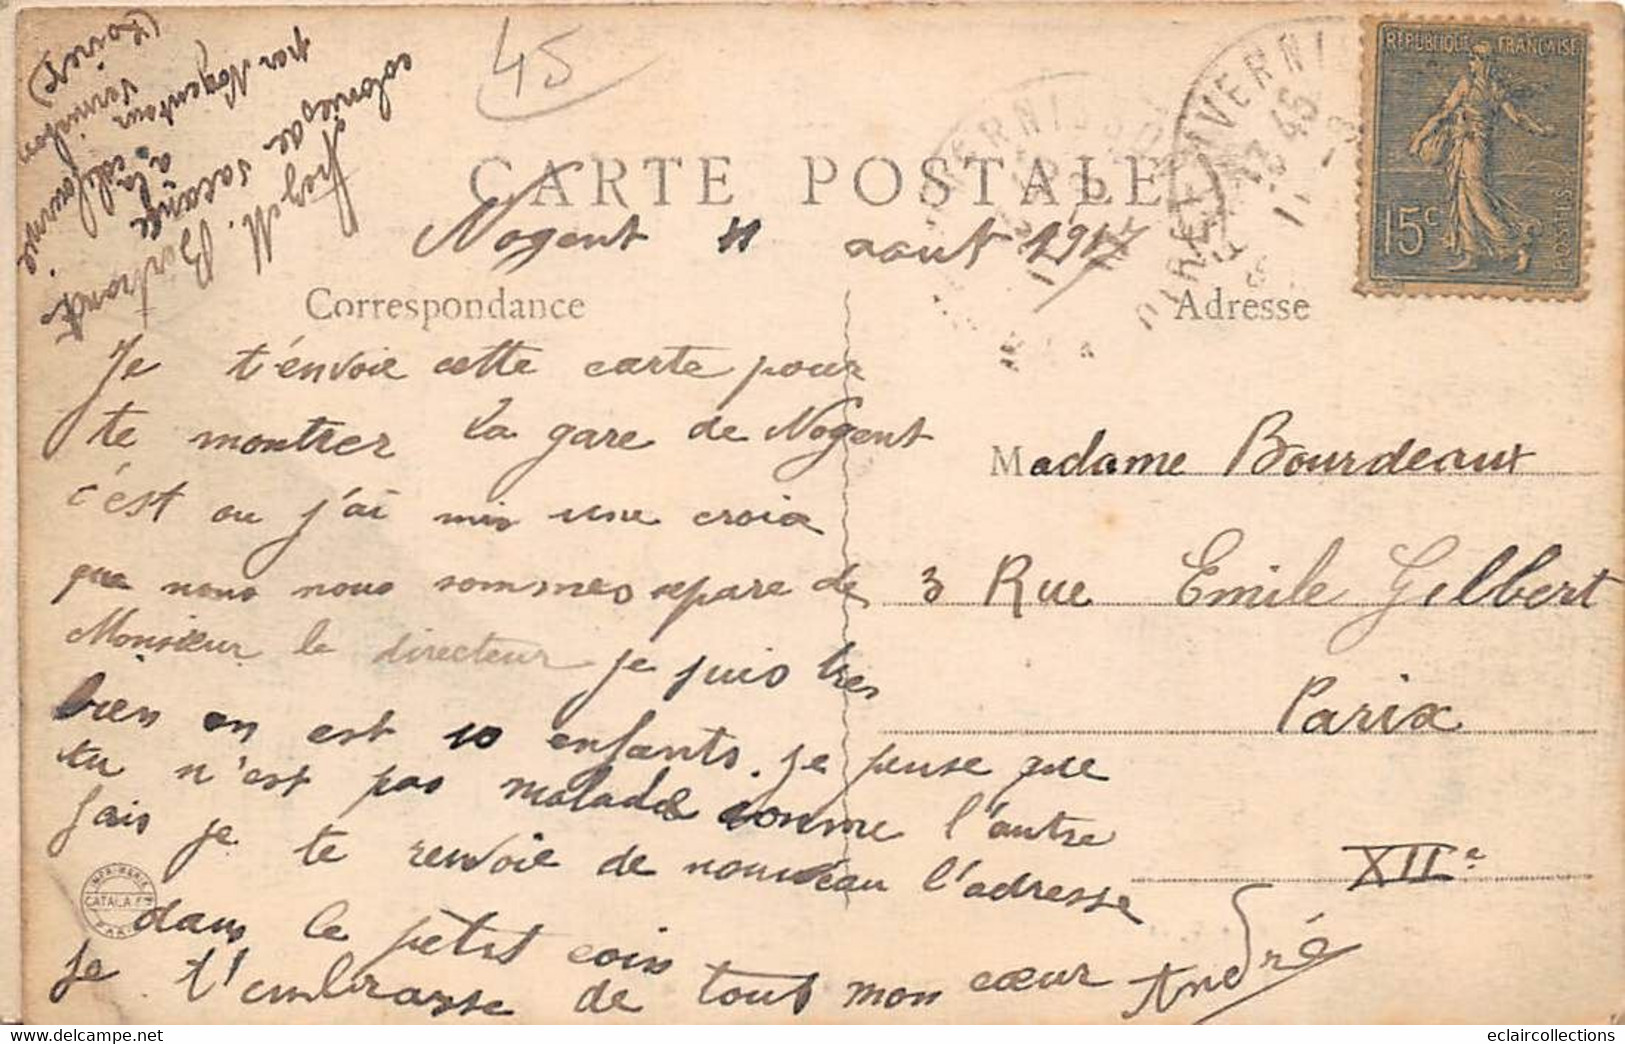 45
Chez M. Bertrand
colonies de vacance
à la idi fournie
par Nogent sur
Vernisson
(Loiret)
CARTE POSTALE
Nogent 11 aout 1917
Correspondance
Je t'envoie cette carte pour
te montrer la gare de Nogent
c'est ou j'ai mis une croix
que nous nous sommes separe de
Monsieur le directeur je suis tres
bien on est 10 enfants. je pense que
tu n'est pas malade comme l'autre
fois je te renvoie de nouveau l'adresse
dans le petit coin
je t'embrasse de tout mon cœur André
Adresse
Madame Bourdeaux
3 Rue Emile Gilbert
Paris
XIIe
REPUBLIQUE FRANÇAISE
15c
POSTES
IMPRIMERIE
CATALA
PARIS
eclaircollections